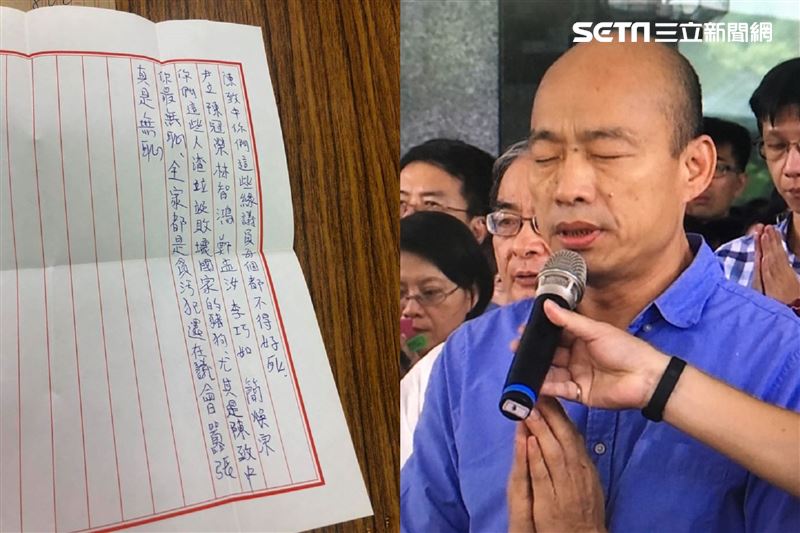 SETN三立新聞網
陳致中你們這些綠議員每個都不得好死、
尹立 陳冠榮 林智鴻 鄭孟洳 李巧如 簡煥宗
你們這些人渣垃圾敗壞國家的豬狗、尤其是陳致中
你最無恥、全家都是貪污犯還在議會囂張
真是無恥